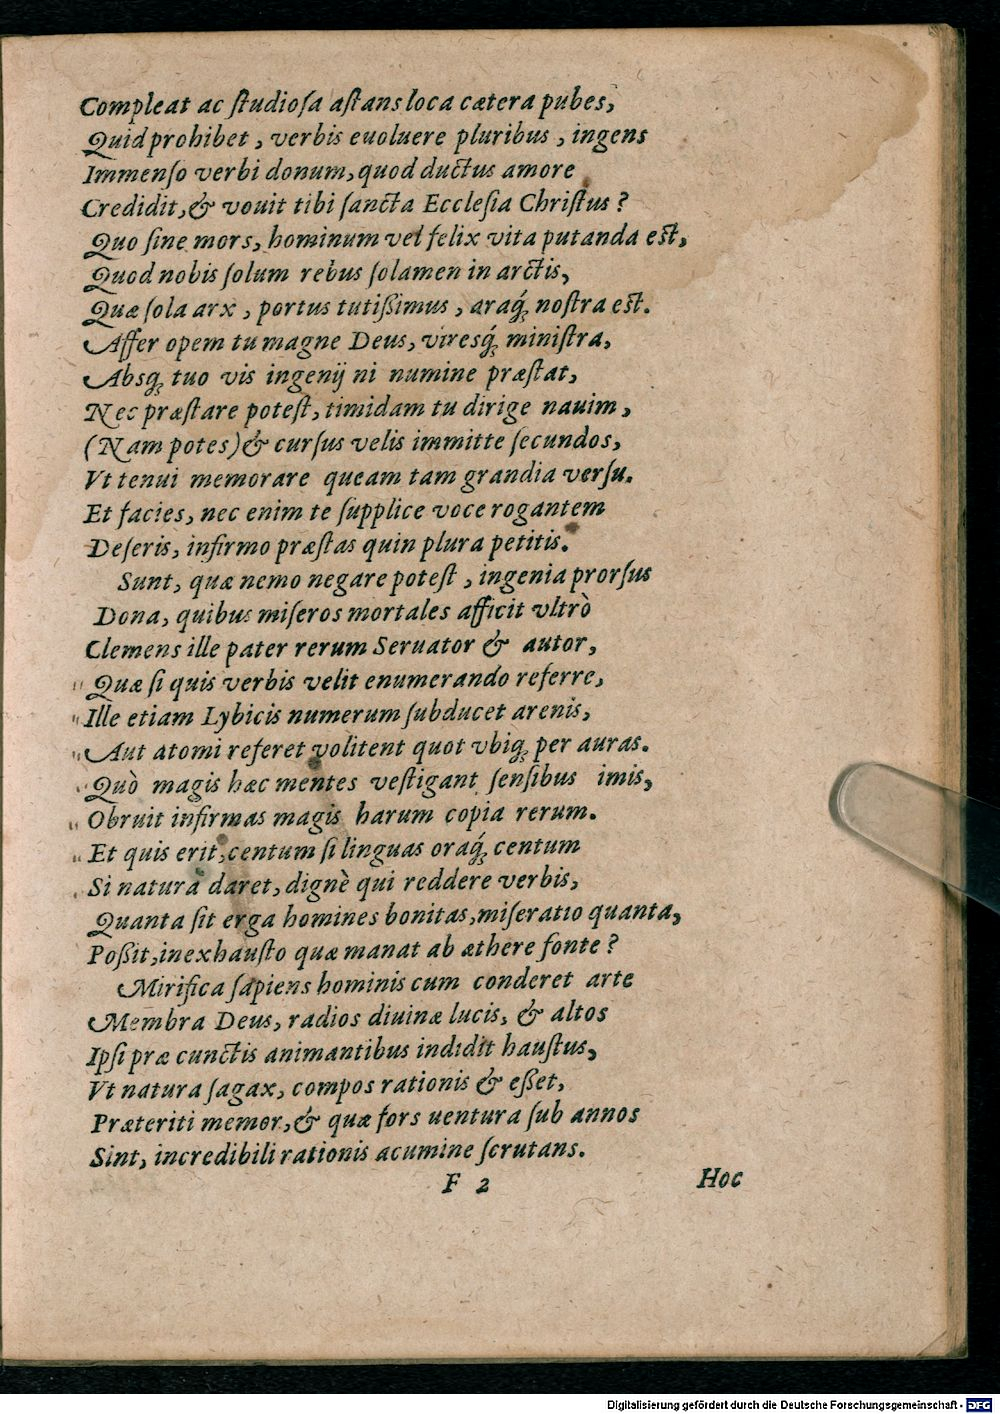 Compleat ac ſtudioſa aſtans loca cætera pubes,
Quid prohibet, verbis euoluere pluribus, ingens
Immenſo verbi donum, quod ductus amore
Credidit, & vouit tibi ſancta Eccleſia Chriſtus?
Quo ſine mors, hominum vel felix vita putanda est,
Quod nobis ſolum rebus ſolamen in arctis,
Quæ ſola arx, portus tutißimus, araq́; noſtra est.
Affer opem tu magne Deus, viresq́; miniſtra,
Absq; tuo vis ingenij ni numine præſtat,
Nec præſtare poteſt, timidam tu dirige nauim,
(Nam potes) & curſus velis immitte ſecundos,
Vt tenui memorare queam tam grandia verſu.
Et facies, nec enim te ſupplice voce rogantem
Deſeris, infirmo præſtas quin plura petitis.
Sunt, quæ nemo negare poteſt, ingenia prorſus
Dona, quibus miſeros mortales afficit vltrò
Clemens ille pater rerum Seruator & autor,
" Quæ ſi quis verbis velit enumerando referre,
" Ille etiam Lybicis numerum ſubducet arenis,
" Aut atomi referet volitent quot vbiq; per auras.
" Quò magis hæc mentes veſtigant ſenſibus imis,
" Obruit infirmas magis harum copia rerum.
" Et quis erit, centum ſi linguas oraq́; centum
Si natura daret, dignè qui reddere verbis,
Quanta ſit erga homines bonitas, miſeratio quanta,
Poßit, inexhauſto quæ manat ab æthere fonte?
Mirifica ſapiens hominis cum conderet arte
Membra Deus, radios diuinæ lucis, & altos
Ipſi præ cunctis animantibus indidit hauſtus,
Vt natura ſagax, compos rationis & eßet,
Præteriti memor, & quæ fors uentura ſub annos
Sint, incredibili rationis acumine ſcrutans.
F 2 Hoc
Digitalisierung gefördert durch die Deutsche Forschungsgemeinschaft - DFG